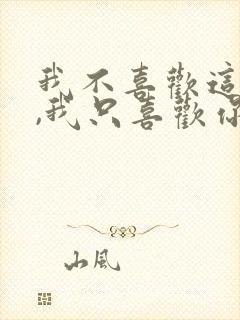 我不喜歡這
,我只喜歡你
山風